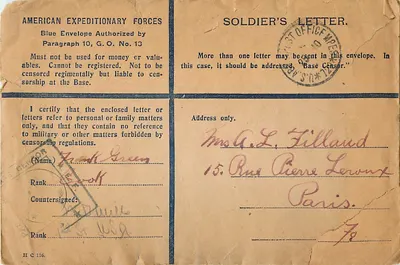 AMERICAN EXPEDITIONARY FORCES
Blue Envelope Authorized by
Paragraph 10, G. O. No. 13
Must not be used for money or valu-
ables. Cannot be registered. Not to be
censored regimentally but liable to cen-
sorship at the Base.
SOLDIER'S LETTER.
More than one letter may be sent in this envelope. In
this case, it should be addressed, "Base Censor."
I certify that the enclosed letter or
letters refer to personal or family matters
only, and that they contain no reference
to military or other matters forbidden by
censorship regulations.
(Name) Frank Green
Rank Cook
Countersigned:
Rank 1st Lt
M C 158.
Address only.
Mrs A. L. Tilland
15. Rue Pierre Leroux
Paris.